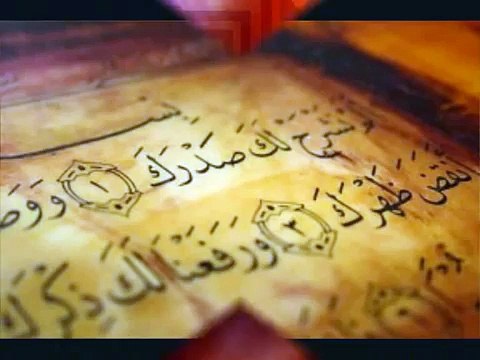 بِسْ
نَشْرَحْ لَكَ صَدْرَكَ ١ وَوَضَ
أَنقَضَ ظَهْرَكَ ٣ وَرَفَعْنَا لَكَ ذِكْرَكَ